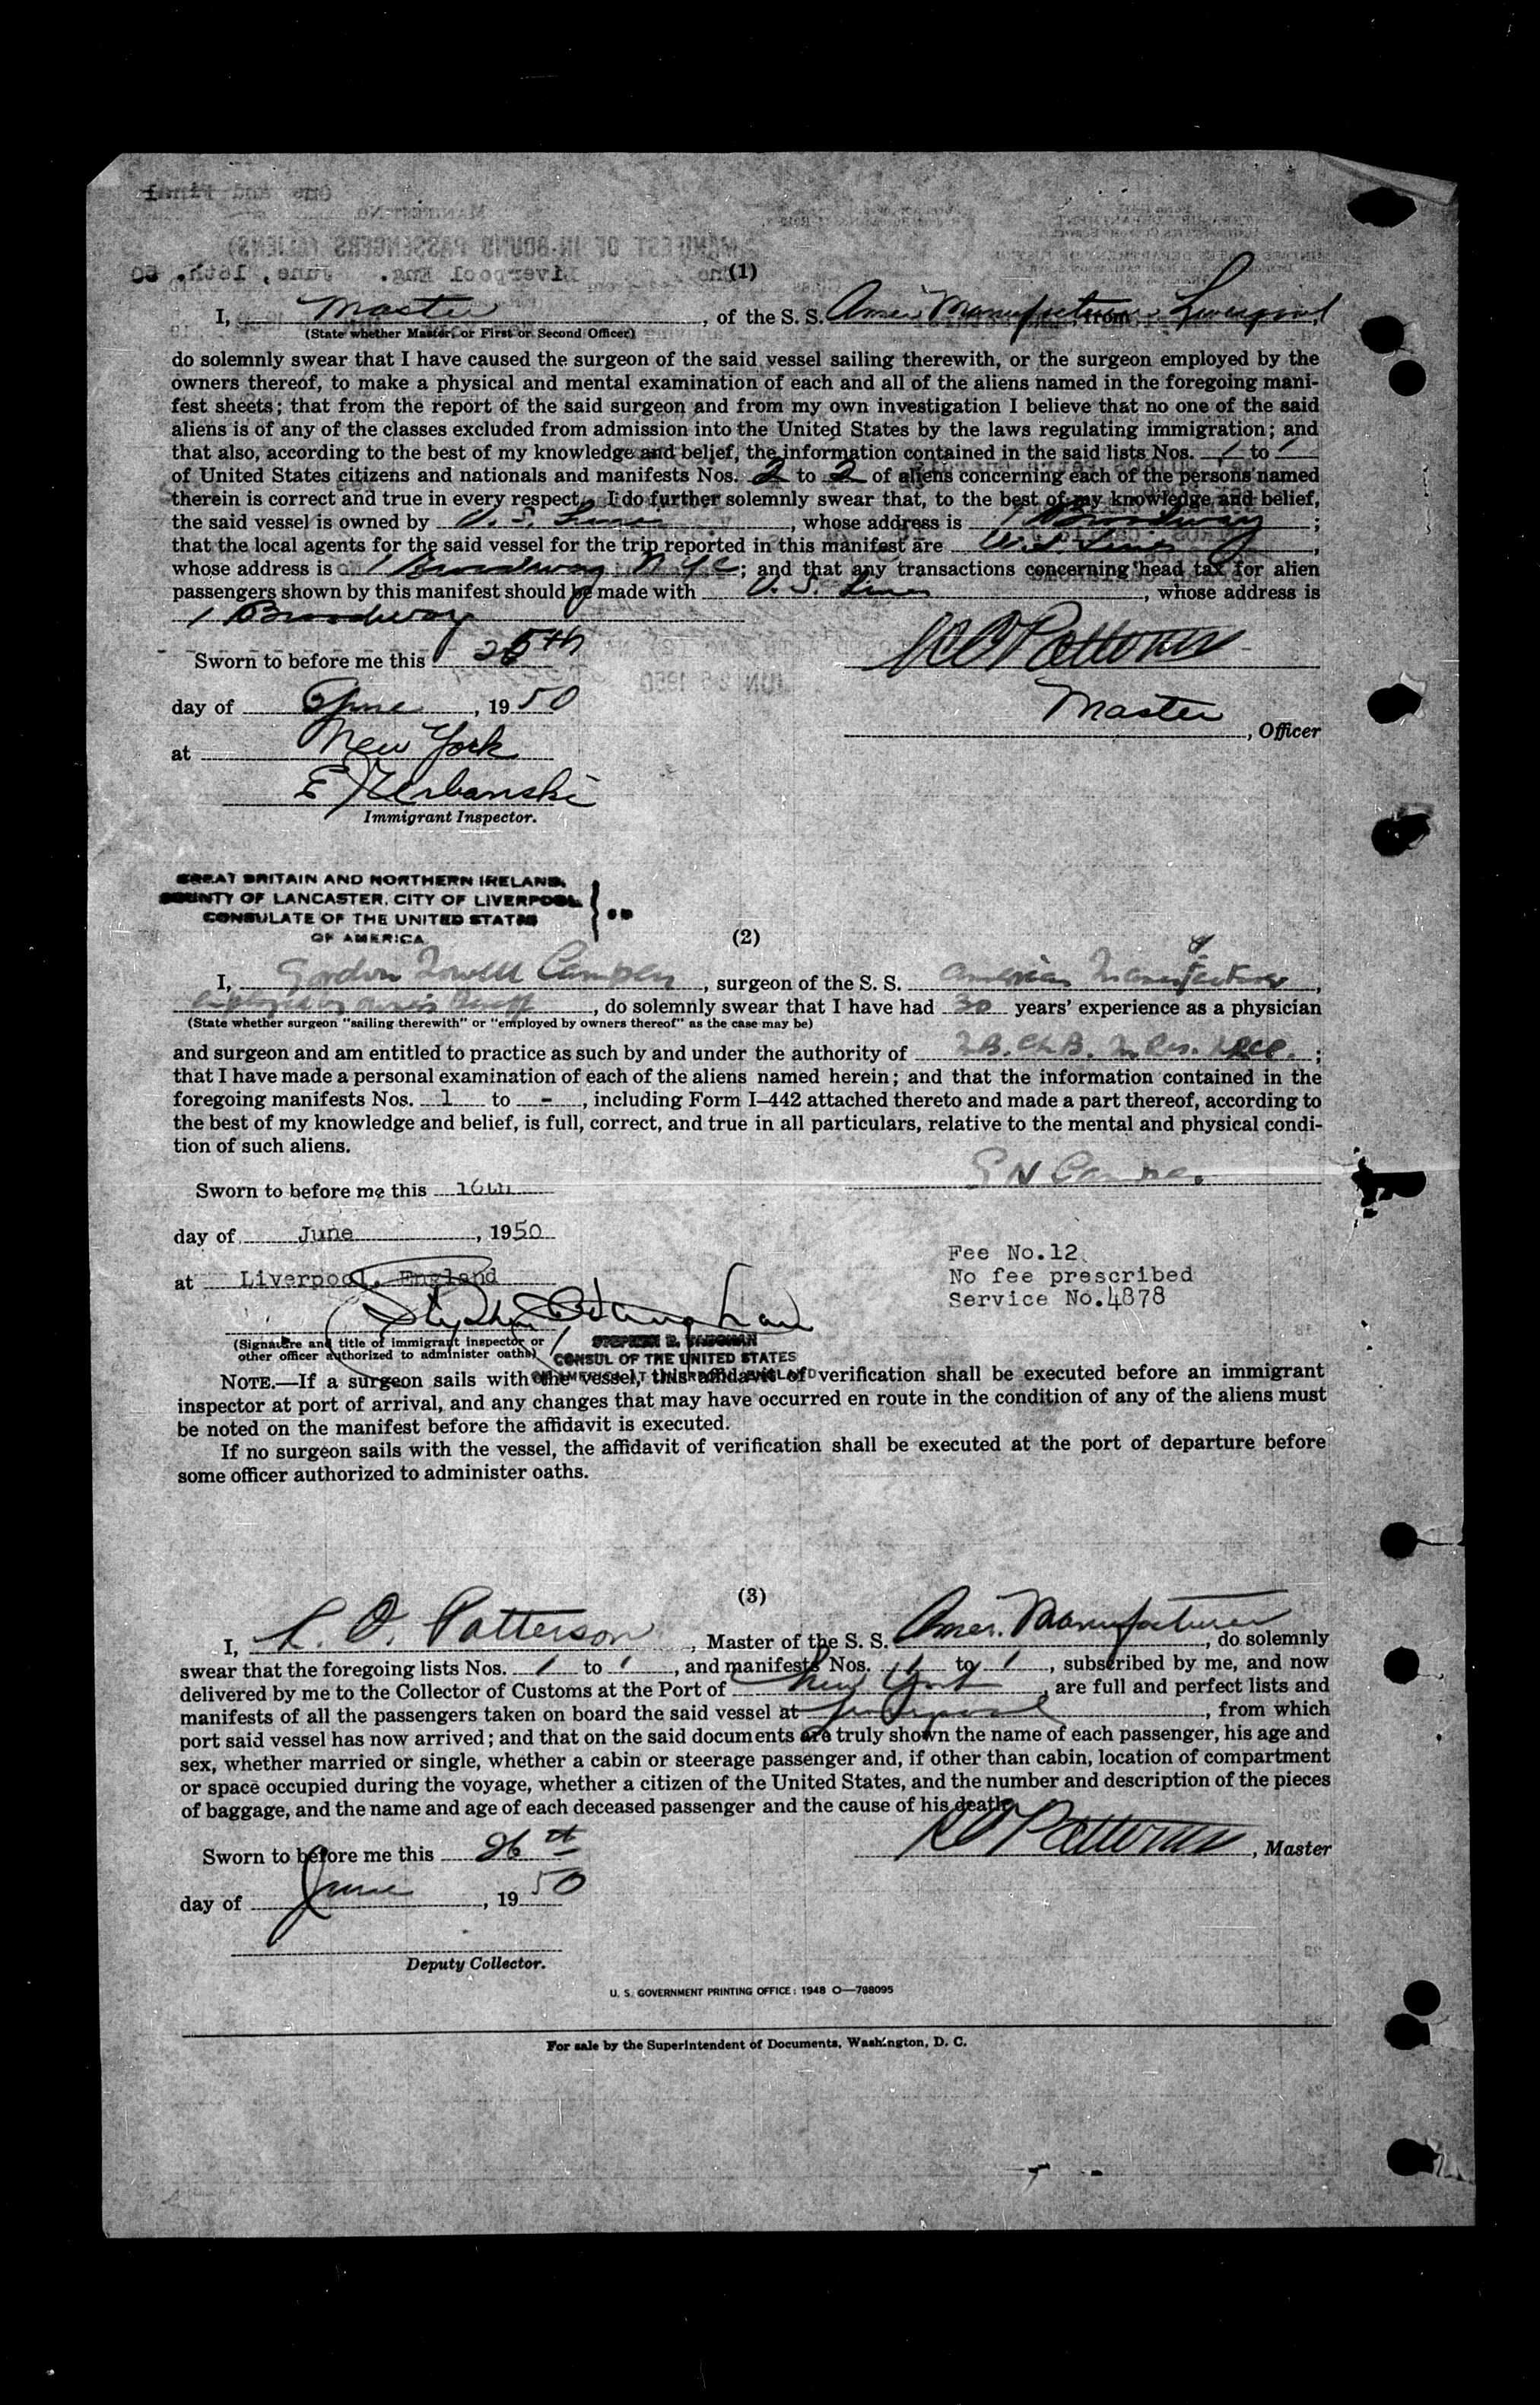 (1)
I, Master, of the S. S. Amer. Manufacturer, from Liverpool,
(State whether Master, or First or Second Officer)
do solemnly swear that I have caused the surgeon of the said vessel sailing therewith, or the surgeon employed by the
owners thereof, to make a physical and mental examination of each and all of the aliens named in the foregoing mani-
fest sheets; that from the report of the said surgeon and from my own investigation I believe that no one of the said
aliens is of any of the classes excluded from admission into the United States by the laws regulating immigration; and
that also, according to the best of my knowledge and belief, the information contained in the said lists Nos. 1 to 1
of United States citizens and nationals and manifests Nos. 2 to 2 of aliens concerning each of the persons named
therein is correct and true in every respect. I do further solemnly swear that, to the best of my knowledge and belief,
the said vessel is owned by U. S. Lines, whose address is 1 Broadway;
that the local agents for the said vessel for the trip reported in this manifest are U.S. Lines,
whose address is 1 Broadway N.Y.C.; and that any transactions concerning head tax for alien
passengers shown by this manifest should be made with U.S. Lines, whose address is
1 Broadway
Sworn to before me this th
day of June, 1950
Patterson
Master, Officer
at New York
E Urbanski
Immigrant Inspector.
GREAT BRITAIN AND NORTHERN IRELAND,
COUNTY OF LANCASTER, CITY OF LIVERPOOL
CONSULATE OF THE UNITED STATES
OF AMERICA
(2)
I, Gordon, surgeon of the S. S. American Manufacturer,
employed by owners thereof, do solemnly swear that I have had 30 years' experience as a physician
(State whether surgeon "sailing therewith" or "employed by owners thereof" as the case may be)
and surgeon and am entitled to practice as such by and under the authority of Ch.B.;
that I have made a personal examination of each of the aliens named herein; and that the information contained in the
foregoing manifests Nos. 1 to -, including Form I-442 attached thereto and made a part thereof, according to
the best of my knowledge and belief, is full, correct, and true in all particulars, relative to the mental and physical condi-
tion of such aliens.
Sworn to before me this 16th
day of June, 1950
at Liverpool, England
Fee No.12
No fee prescribed
Service No.4878
(Signature and title of immigrant inspector or
other officer authorized to administer oaths)
STEPHEN B. VAUGHAN
CONSUL OF THE UNITED STATES
OF AMERICA AT LIVERPOOL, ENGLAND
NOTE.—If a surgeon sails with the vessel, this affidavit of verification shall be executed before an immigrant
inspector at port of arrival, and any changes that may have occurred en route in the condition of any of the aliens must
be noted on the manifest before the affidavit is executed.
If no surgeon sails with the vessel, the affidavit of verification shall be executed at the port of departure before
some officer authorized to administer oaths.
(3)
I, R. O. Patterson, Master of the S. S. Amer. Manufacturer, do solemnly
swear that the foregoing lists Nos. 1 to 1, and manifests Nos. 1 to 1, subscribed by me, and now
delivered by me to the Collector of Customs at the Port of New York, are full and perfect lists and
manifests of all the passengers taken on board the said vessel at Liverpool, from which
port said vessel has now arrived; and that on the said documents are truly shown the name of each passenger, his age and
sex, whether married or single, whether a cabin or steerage passenger and, if other than cabin, location of compartment
or space occupied during the voyage, whether a citizen of the United States, and the number and description of the pieces
of baggage, and the name and age of each deceased passenger and the cause of his death.
Sworn to before me this 26th
R O Patterson, Master
day of June, 1950
Deputy Collector.
U. S. GOVERNMENT PRINTING OFFICE : 1948 O—788095
For sale by the Superintendent of Documents, Washington, D. C.